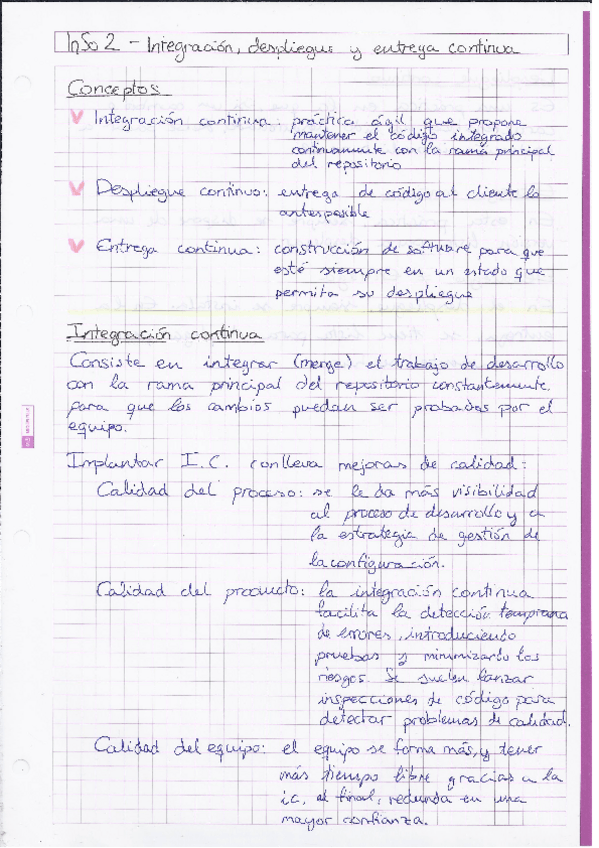 InSo 2 - Integración, despliegue y entrega continua
Conceptos
Integración continua: práctica ágil que propone
mantener el código integrado
continuamente con la rama principal
del repositorio
Despliegue continuo: entrega de código al cliente lo
antes posible
Entrega continua: construcción de software para que
esté siempre en un estado que
permita su despliegue
Integración continua
Consiste en integrar (merge) el trabajo de desarrollo
con la rama principal del repositorio constantemente
para que los cambios puedan ser probados por el
equipo.
Implantar I.C. conlleva mejoras de calidad:
Calidad del proceso: se le da más visibilidad
al proceso de desarrollo y a
la estrategia de gestión de
la configuración.
Calidad del producto: la integración continua
facilita la detección temprana
de errores, introduciendo
pruebas y minimizando los
riesgos. Se suelen lanzar
inspecciones de código para
detectar problemas de calidad.
Calidad del equipo: el equipo se forma más, y tener
más tiempo libre gracias a la
i.c, al final, redunda en una
mayor confianza.